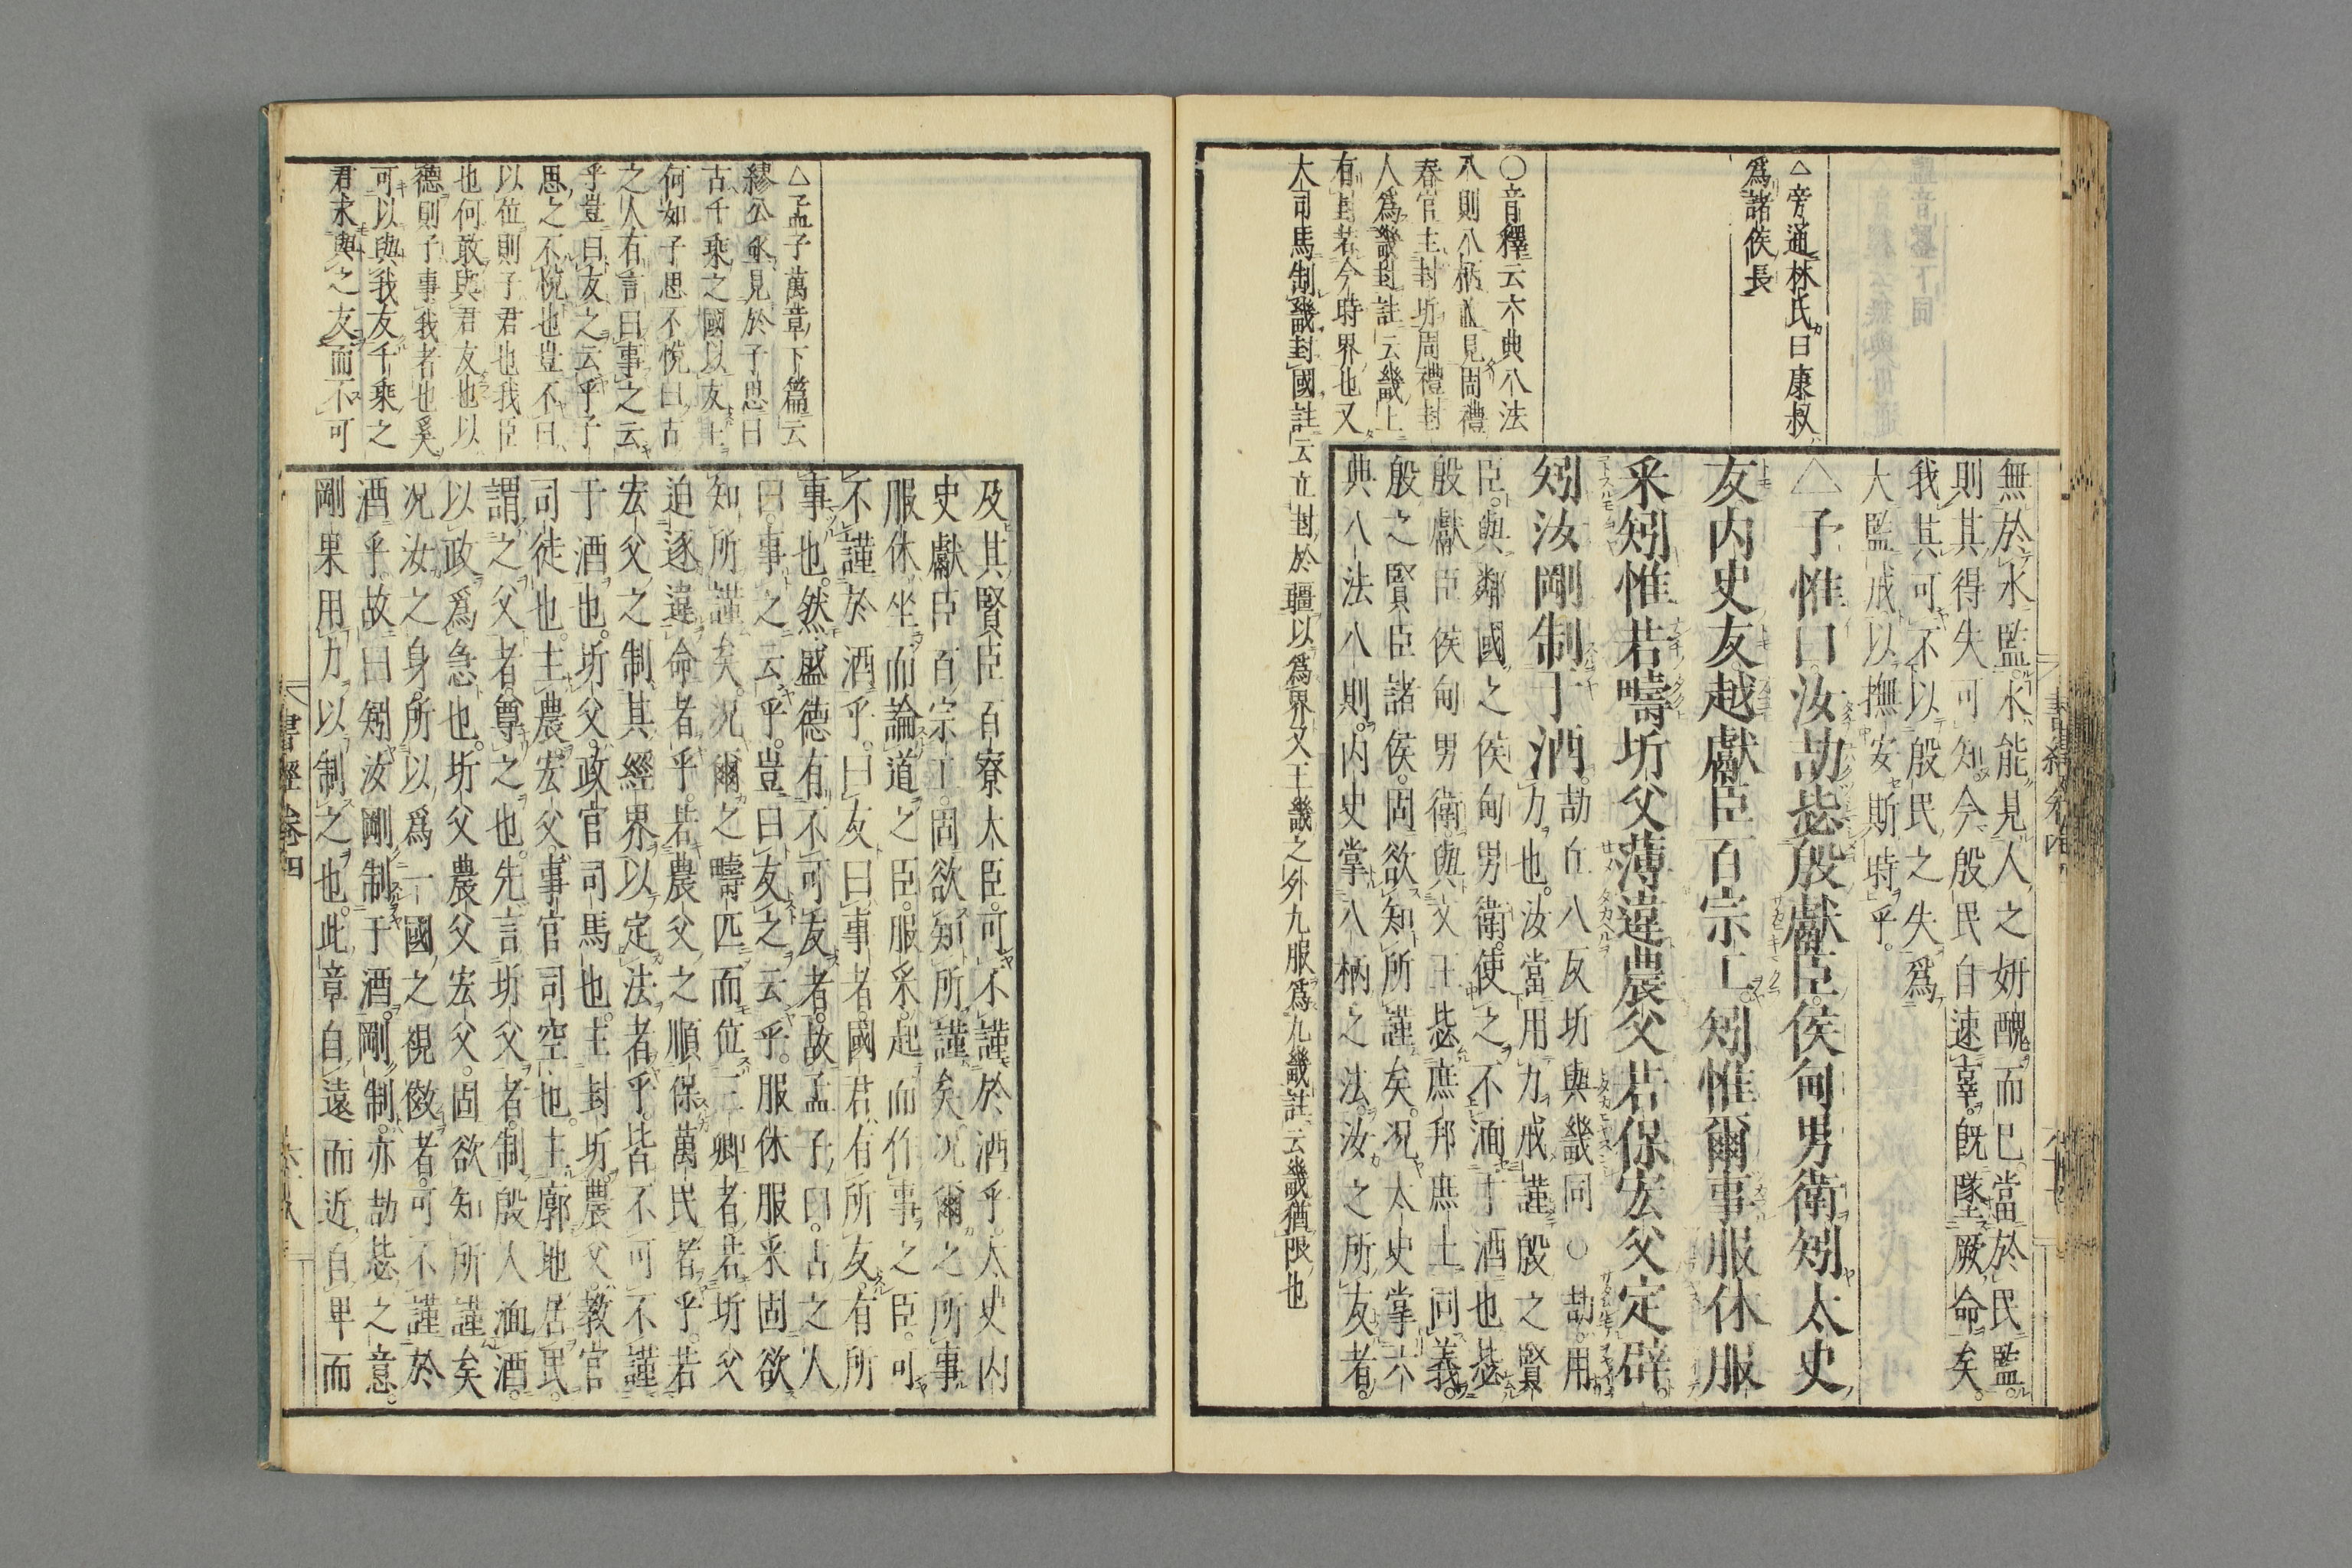 無於水監水能見人之妍醜而已當於民監
則其得失可知今殷民自速辜既墜厥命矣
我其可不以殷民之失爲
大監戒以撫安斯時乎
△予惟曰汝劼毖殷獻臣侯甸男衛矧太史
友内史友越獻臣百宗工矧惟爾事服休服
采矧惟若疇圻父薄違農父若保宏父定辟
矧汝剛制于酒劼丘八反圻與畿同○劼用
力也汝當用力戒謹殷之賢
臣與鄰國之侯甸男衛使之不湎于酒也毖
殷獻臣侯甸男衛與文王毖庶邦庶士同義
殷之賢臣諸侯固欲知所謹矣况太史掌六
典八法八則内史掌八柄之法汝之所友者
△旁通林氏曰康叔
爲諸侯長
○音釋云六典八法
八則八柄並見周禮
春官主封圻周禮封
人爲畿封註云畿上
有封若今時界也又
大司馬制畿封國註云立封於疆以爲界又王畿之外九服爲九畿註云畿猶限也
書經卷四
及其賢臣百寮大臣可不謹於酒乎太史内
史獻臣百宗工固欲知所謹矣况爾之所事
服休坐而論道之臣服采起而作事之臣可
不謹於酒乎曰友曰事者國君有所友有所
事也然盛德有不可友者故孟子曰古之人
曰事之云乎豈曰友之云乎服休服采固欲
知所謹矣况爾之疇匹而位三卿者若圻父
迫逐違命者乎若農父之順保萬民者乎若
宏父之制其經界以定法者乎皆不可不謹
于酒也圻父政官司馬也主封圻農父教官
司徒也主農宏父事官司空也主廓地居民
謂之父者尊之也先言圻父者制殷人湎酒
以政爲急也圻父農父宏父固欲知所謹矣
况汝之身所以爲一國之視傚者可不謹於
酒乎故曰矧汝剛制于酒剛制亦劼毖之意
剛果用力以制之也此章自遠而近自卑而
△孟子萬章下篇云
繆公亟見於子思曰
古千乘之國以友士
何如子思不悅曰古
之人有言曰事之云
乎豈曰友之云乎子
思之不悅也豈不曰
以位則子君也我臣
也何敢與君友也以
德則子事我者也奚
可以與我友千乘之
君求與之友而不可
書經卷四